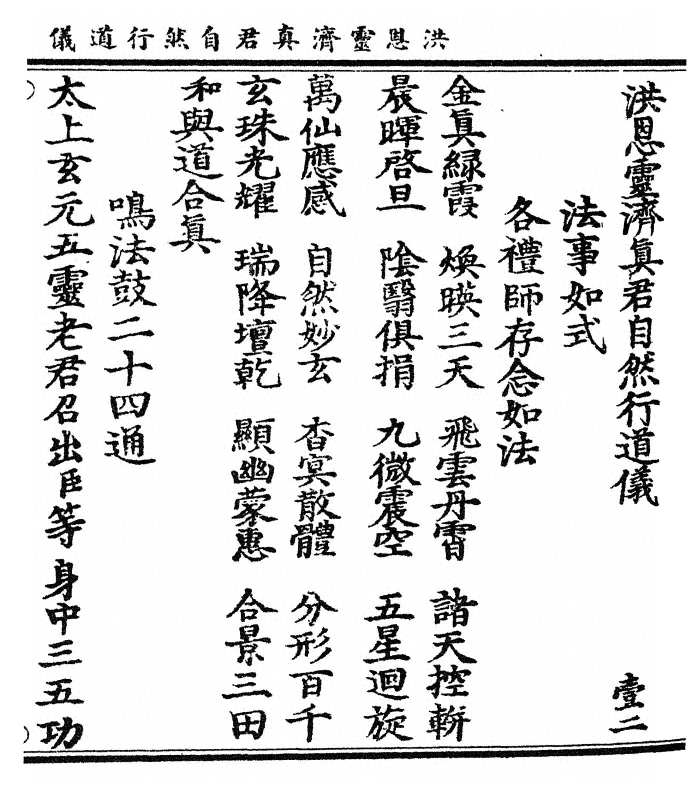 洪恩靈濟真君自然行道儀
洪恩靈濟眞君自然行道儀　壹二
法事如式
各禮師存念如法
金眞綠霞　煥暎三天　飛雲丹霄　諸天控輧
晨暉啓旦　陰翳俱捐　九微震空　五星迴旋
萬仙應感　自然妙玄　杳冥散體　分形百千
玄珠光耀　瑞降壇乾　顯幽蒙惠　合景三田
和與道合眞
鳴法鼓二十四通
太上玄元五靈老君召出臣等身中三五功